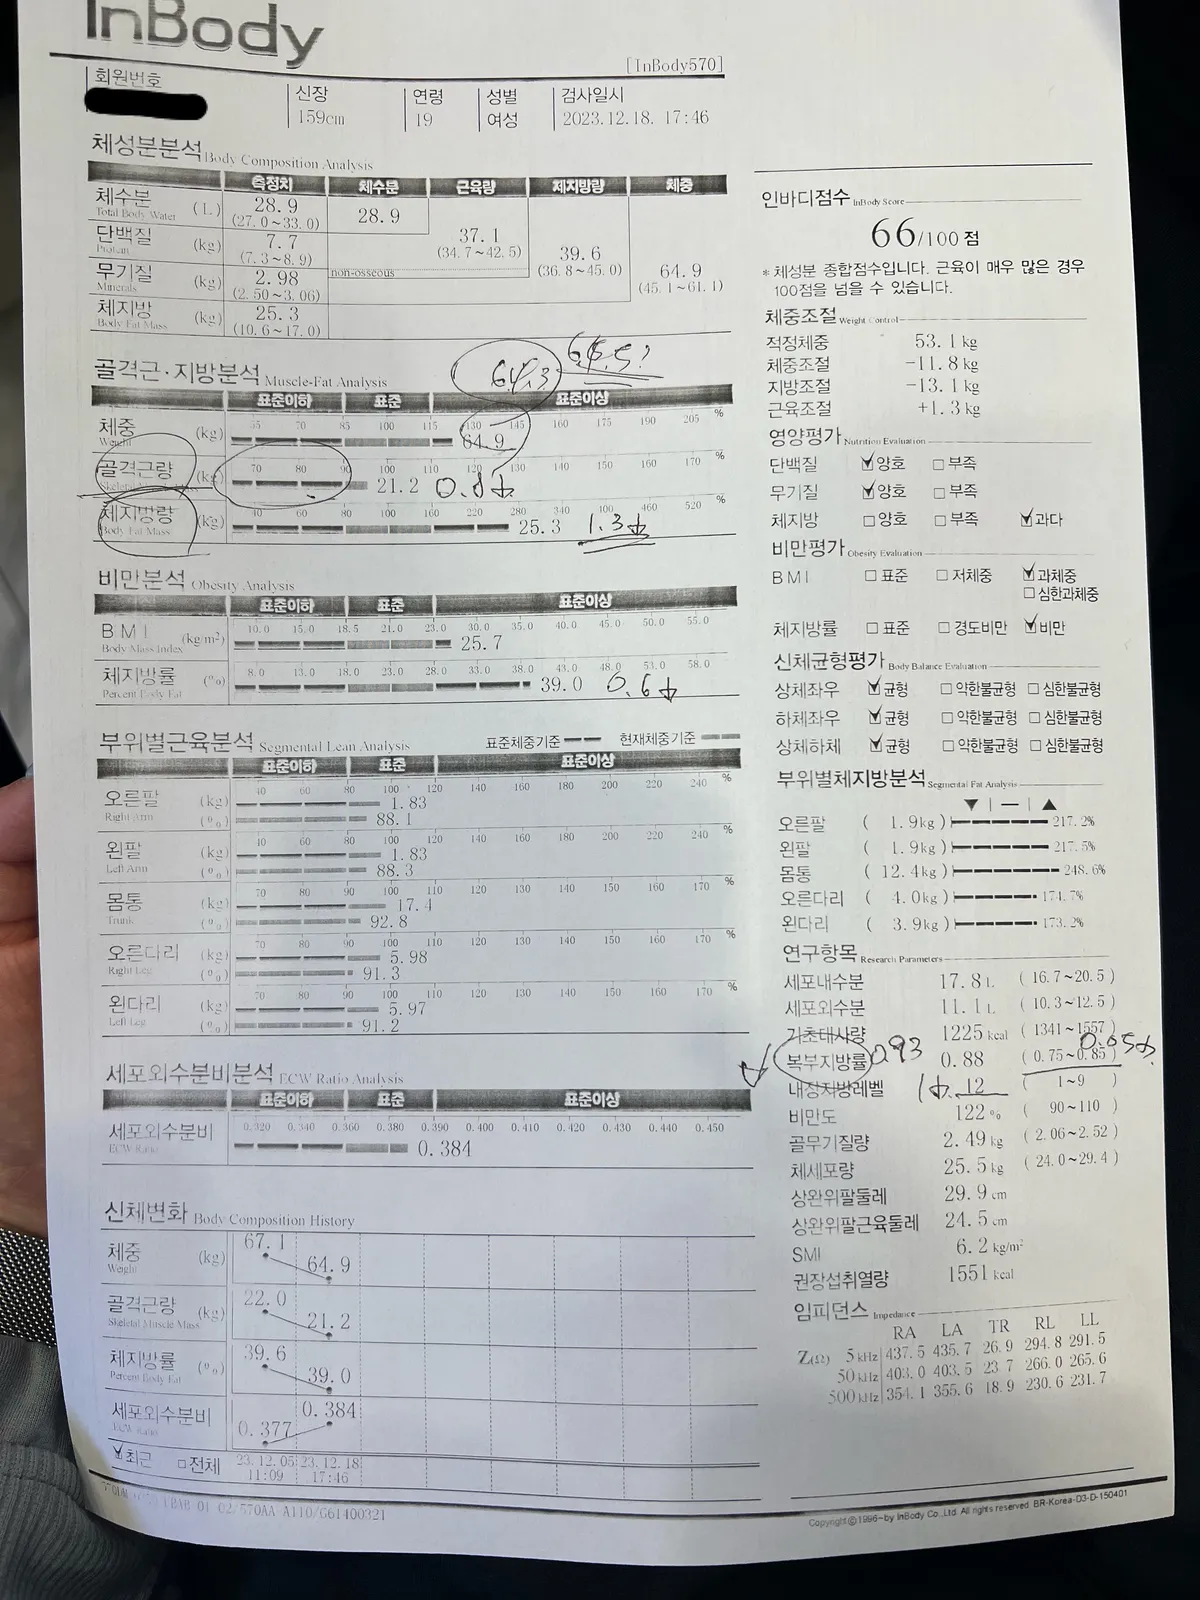 InBody
[InBody570]
회원번호
신장 연령 성별 검사일시
159cm 19 여성 2023.12.18. 17:46
체성분분석 Body Composition Analysis
측정치 체수분 근육량 제지방량 체중
체수분 Total Body Water (L) 28.9 (27.0~33.0) 28.9
단백질 Protein (kg) 7.7 (7.3~8.9) 37.1 (34.7~42.5)
무기질 Minerals (kg) 2.98 (2.50~3.06) non-osseous 39.6 (36.8~45.0)
체지방 Body Fat Mass (kg) 25.3 (10.6~17.0) 64.9 (45.1~61.1)
골격근·지방분석 Muscle-Fat Analysis 64.3
표준이하 표준 표준이상
체중 Weight (kg) 55 70 85 100 115 130 145 160 175 190 205 %
64.9
골격근량 Skeletal Muscle Mass (kg) 70 80 90 100 110 120 130 140 150 160 170 %
21.2
체지방량 Body Fat Mass (kg) 40 60 80 100 160 220 280 340 400 460 520 %
25.3 1.3↓
비만분석 Obesity Analysis
표준이하 표준 표준이상
BMI Body Mass Index (kg/m²) 10.0 15.0 18.5 21.0 23.0 30.0 35.0 40.0 45.0 50.0 55.0
25.7
체지방률 Percent Body Fat (%) 8.0 13.0 18.0 23.0 28.0 33.0 38.0 43.0 48.0 53.0 58.0
39.0 0.6↓
부위별근육분석 Segmental Lean Analysis 표준체중기준 현재체중기준
표준이하 표준 표준이상
오른팔 Right Arm (kg) (%) 40 60 80 100 120 140 160 180 200 220 240 %
1.83
88.1
왼팔 Left Arm (kg) (%) 40 60 80 100 120 140 160 180 200 220 240 %
1.83
88.3
몸통 Trunk (kg) (%) 70 80 90 100 110 120 130 140 150 160 170 %
17.4
92.8
오른다리 Right Leg (kg) (%) 70 80 90 100 110 120 130 140 150 160 170 %
5.98
91.3
왼다리 Left Leg (kg) (%) 70 80 90 100 110 120 130 140 150 160 170 %
5.97
91.2
세포외수분비분석 ECW Ratio Analysis
표준이하 표준 표준이상
세포외수분비 ECW Ratio 0.320 0.340 0.360 0.380 0.390 0.400 0.410 0.420 0.430 0.440 0.450
0.384
신체변화 Body Composition History
체중 Weight (kg) 67.1 64.9
골격근량 Skeletal Muscle Mass (kg) 22.0 21.2
체지방률 Percent Body Fat (%) 39.6 39.0
세포외수분비 ECW Ratio 0.377 0.384
최근 전체 23.12.05 11:09 23.12.18 17:46
인바디점수 InBody Score
66/100 점
* 체성분 종합점수입니다. 근육이 매우 많은 경우
100점을 넘을 수 있습니다.
체중조절 Weight Control
적정체중 53.1 kg
체중조절 -11.8 kg
지방조절 -13.1 kg
근육조절 +1.3 kg
영양평가 Nutrition Evaluation
단백질 양호 부족
무기질 양호 부족
체지방 양호 부족 과다
비만평가 Obesity Evaluation
BMI 표준 저체중 과체중
심한과체중
체지방률 표준 경도비만 비만
신체균형평가 Body Balance Evaluation
상체좌우 균형 약한불균형 심한불균형
하체좌우 균형 약한불균형 심한불균형
상체하체 균형 약한불균형 심한불균형
부위별체지방분석 Segmental Fat Analysis
오른팔 ( 1.9kg ) 217.2%
왼팔 ( 1.9kg ) 217.5%
몸통 ( 12.4kg ) 248.6%
오른다리 ( 4.0kg ) 174.7%
왼다리 ( 3.9kg ) 173.2%
연구항목 Research Parameters
세포내수분 17.8 L ( 16.7~20.5 )
세포외수분 11.1 L ( 10.3~12.5 )
기초대사량 1225 kcal ( 1341~1557 )
복부지방률 0.93 0.88 ( 0.75~0.85 ) 0.05↓
내장지방레벨 1↓ 12 ( 1~9 )
비만도 122 % ( 90~110 )
골무기질량 2.49 kg ( 2.06~2.52 )
체세포량 25.5 kg ( 24.0~29.4 )
상완위팔둘레 29.9 cm
상완위팔근육둘레 24.5 cm
SMI 6.2 kg/m²
권장섭취열량 1551 kcal
임피던스 Impedance
RA LA TR RL LL
Z(Ω) 5 kHz 437.5 435.7 26.9 294.8 291.5
50 kHz 403.0 403.5 23.7 266.0 265.6
500 kHz 354.1 355.6 18.9 230.6 231.7
Copyright©1996~by InBody Co.,Ltd. All rights reserved. BR-Korea-D3-D-150401